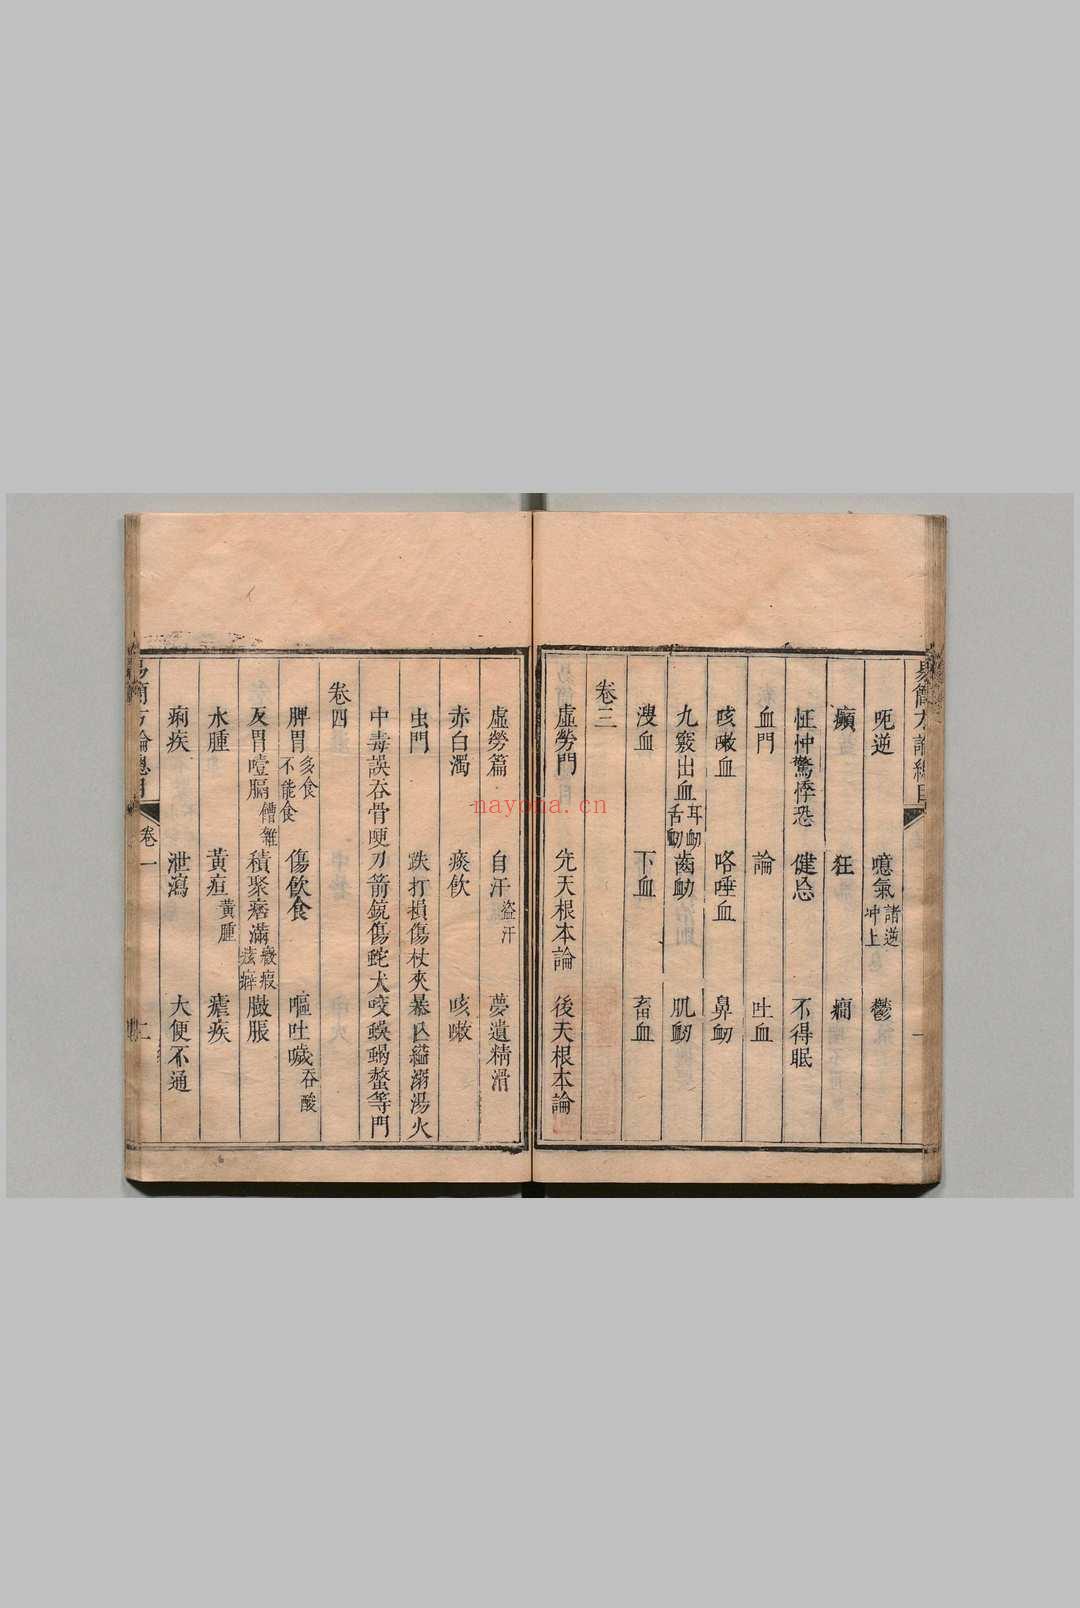 易簡方論總目
一
呃逆 噫氣 諸逆冲上 鬱
癲 狂 癇
怔忡驚悸恐 健忘 不得眠
血門 論 吐血
咳嗽血 咯唾血 鼻衂
九竅出血 耳衂舌衂 齒衂 肌衂
溲血 下血 畜血
卷三
虛勞門 先天根本論 後天根本論
虛勞篇 自汗 盜汗 夢遺精滑
赤白濁 痰飲 咳嗽
虫門 跌打損傷杖夾暴亾縊溺湯火
中毒誤吞骨哽刀箭銃傷蛇犬咬蜈蝎螫等門
卷四
脾胃 多食不能食 傷飲食 嘔吐噦 吞酸
反胃噎膈 嘈雜 積聚痞滿 癥瘕痃癖 臌脹
水腫 黃疸 黃腫 瘧疾
痢疾 泄瀉 大便不通
易簡方論總目
卷一
二
nayona.cn